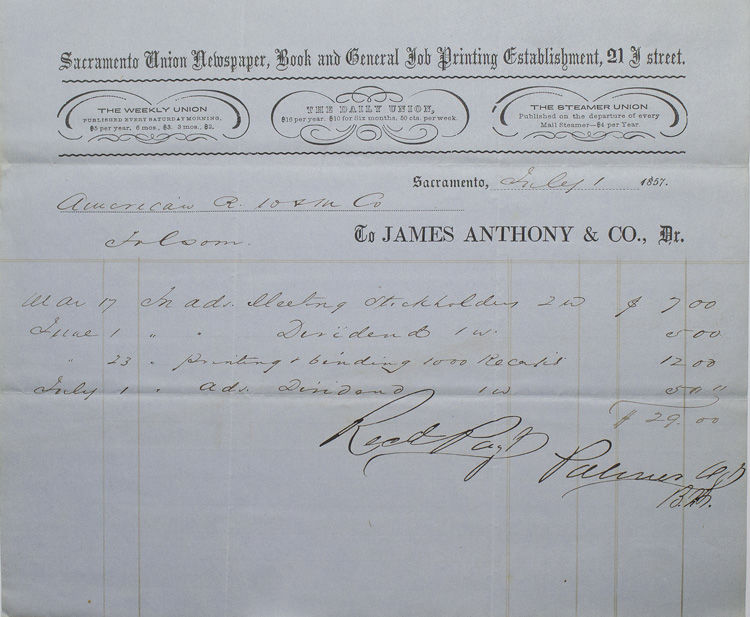 Sacramento Union Newspaper, Book and General Job Printing Establishment, 21 J street.
THE WEEKLY UNION
PUBLISHED EVERY SATURDAY MORNING,
$5 per year, 6 mos., $3. 3 mos., $2.
THE DAILY UNION,
$16 per year. $10 for Six months. 50 cts. per week.
THE STEAMER UNION
Published on the departure of every
Mail Steamer—$4 per Year
Sacramento, July 1 1857.
American R. W & M Co
Folsom.
To JAMES ANTHONY & CO., Dr.
Mar 17 In ads. Meeting Stockholders 2 w $ 7 00
June 1 " " Dividend 1 w. 5 00
" 23 " printing & binding 1000 Receits 12 00
July 1 " ads. Dividend 1 w 5 0 "
$ 29.00
Recd Payt
Palmer Agt